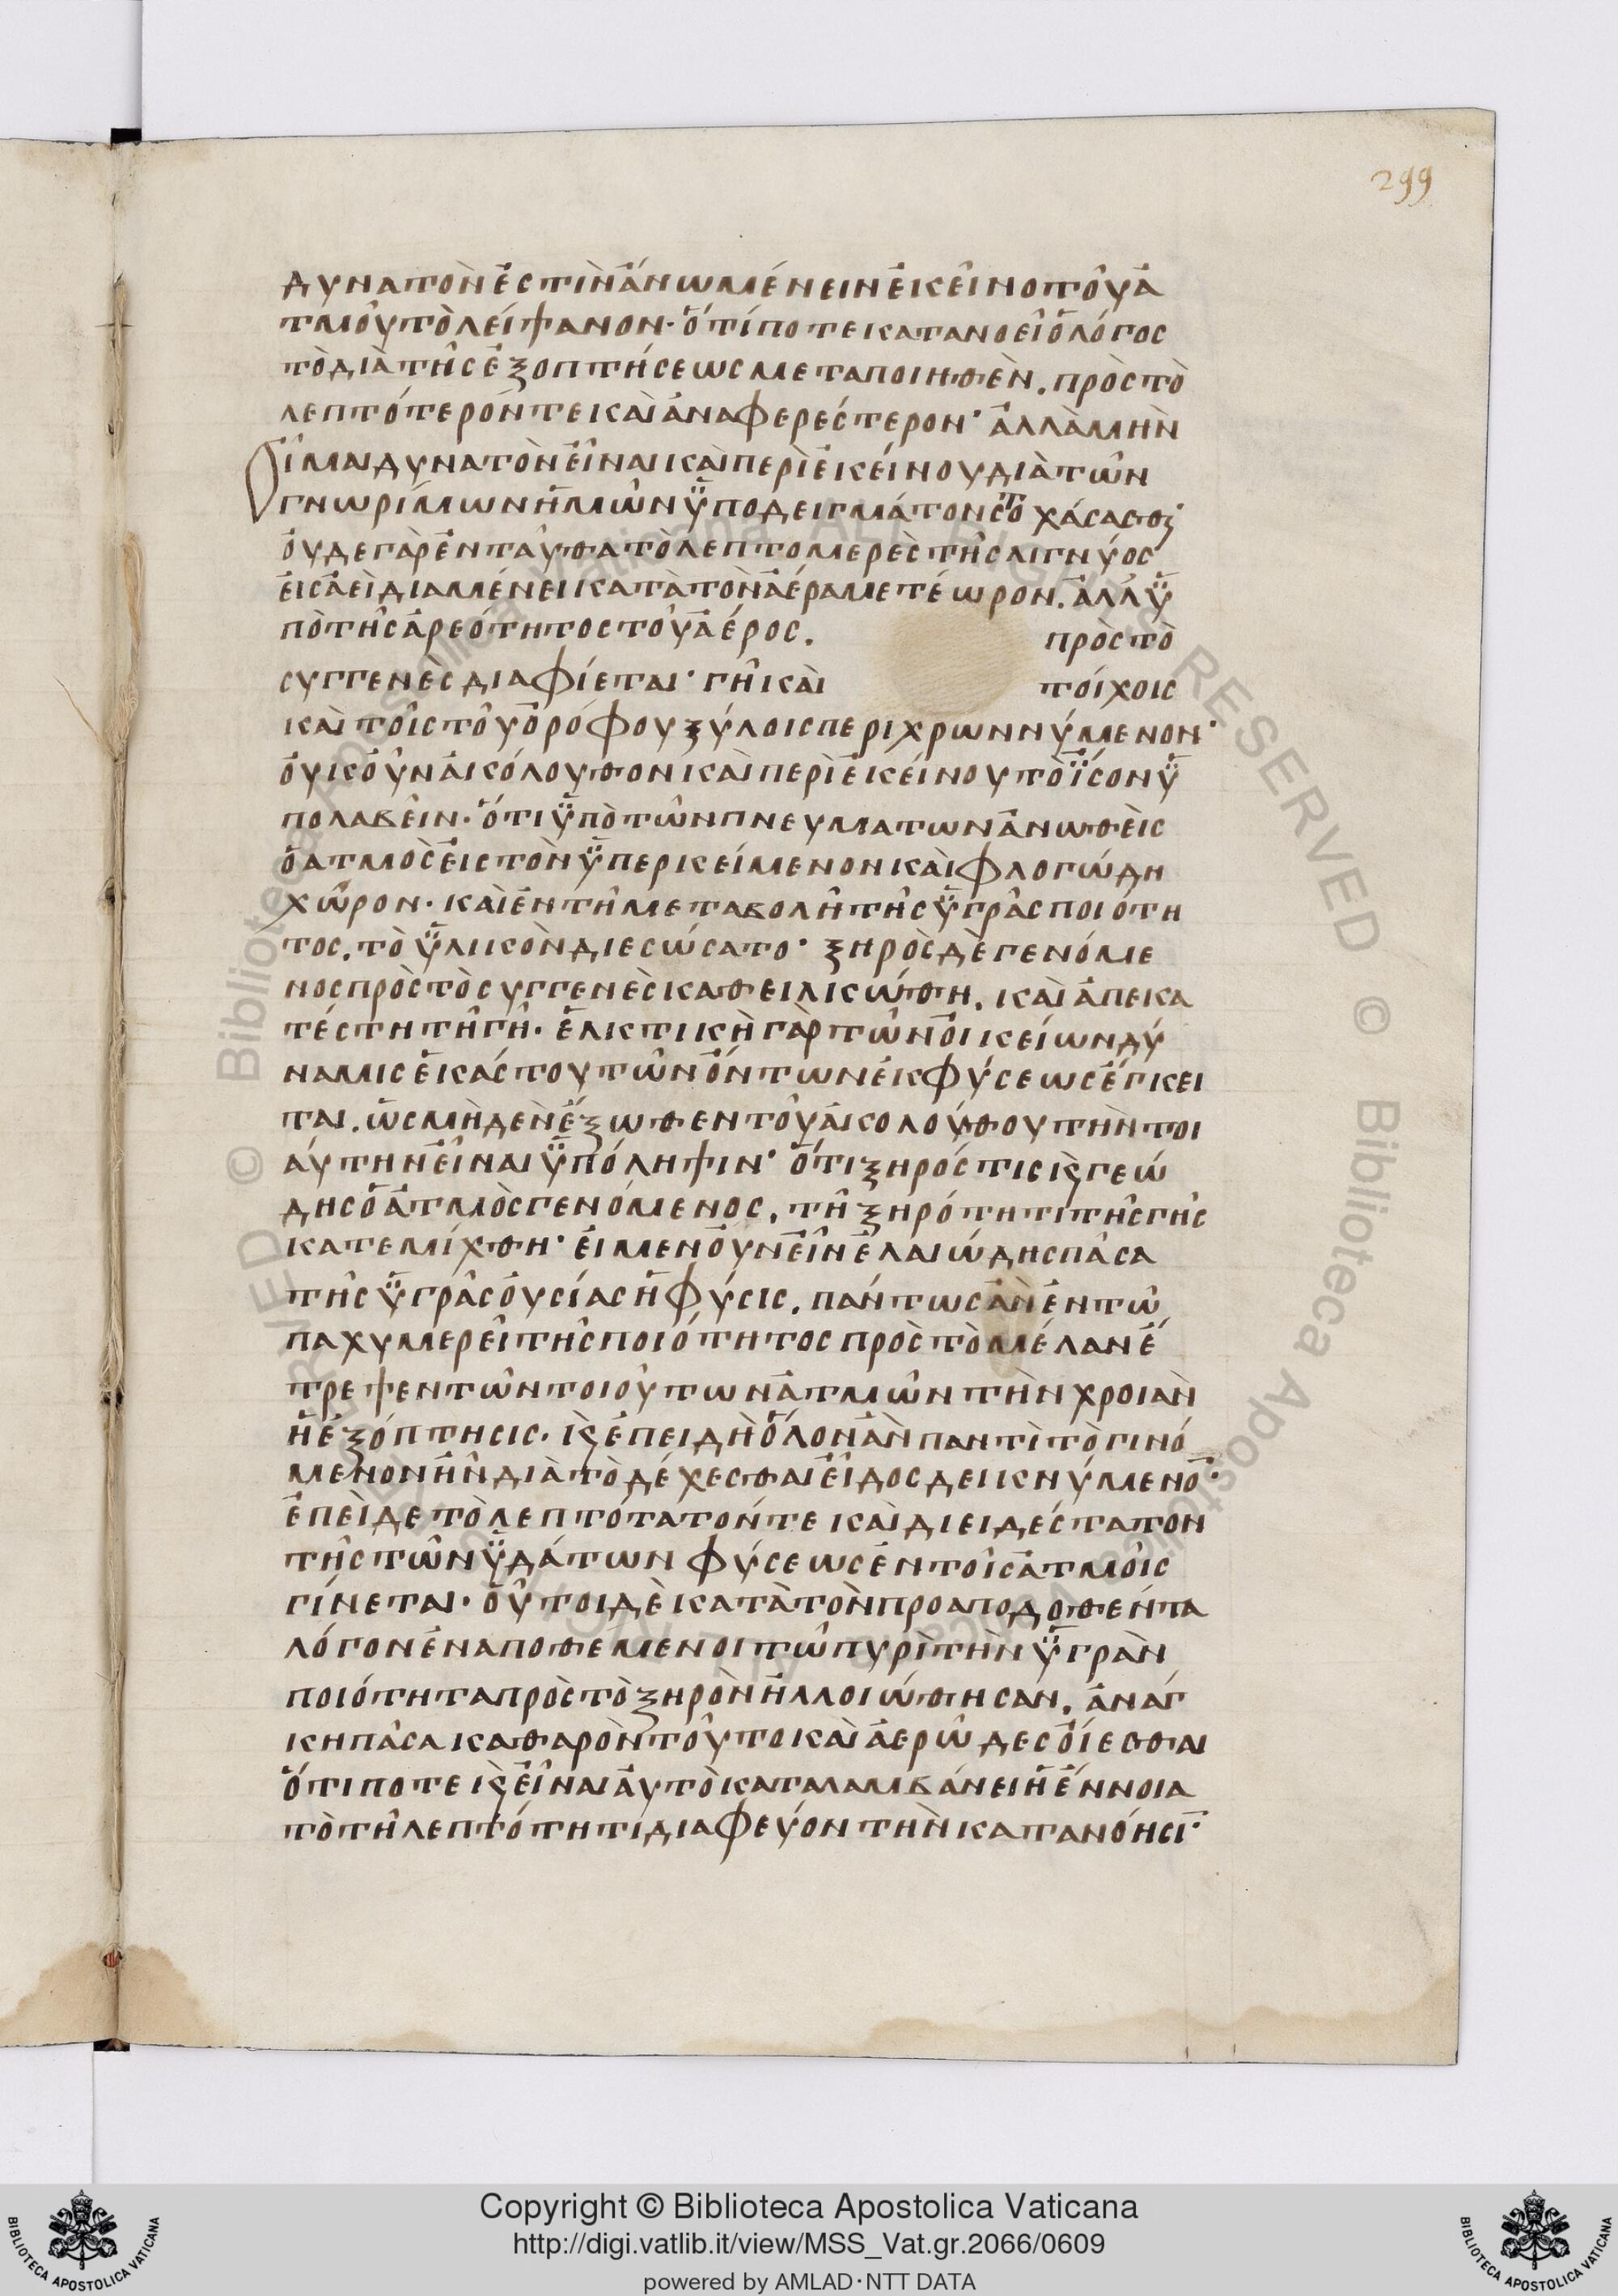 299
δυνατὸν ἐστὶν ἄνω μένειν ἐκεῖνο τοῦ ἀ
τμοῦ τὸ λείψανον· ὅτί ποτε κατανοεῖ ὁ λόγος
τὸ διὰ τῆς ἐξοπτήσεως μεταποιηθὲν. πρὸς τὸ
λεπτότερόν τε καὶ ἀναφερέστερον· ἀλλὰ μὴν
Οἶμαι δυνατὸν εἶναι καὶ περὶ ἐκείνου διὰ τῶν
γνωρίμων ἡμῶν ϋποδειγμάτον στοχάσασθ
ουδε γὰρ ἐνταῦθα τὸ λεπτομερὲς τῆς λιγνύος
εἰσαεὶ διαμένει κατὰ τὸν ἀέρα μετέωρον. ἀλλ' ϋ
πὸ τῆς ἀρεότητος τοῦ ἀέρος. πρὸς τὸ
συγγενὲς διαφίεται· γῆι καὶ τοίχοις
καὶ τοῖς τοῦ ὀρόφου ξύλοις περιχρωννύμενον·
οὐκοῦν ἀκόλουθον καὶ περὶ ἐκείνου τὸ ΐσον ϋ
πολαβεῖν· ὅτι ϋπὸ τῶν πνευματων ἀνωθεὶς
ὁ ατμὸς εἰς τὸν ϋπερκείμενον καὶ φλογώδη
χῶρον· καὶ ἐν τῆ μεταβολῆ τῆς ϋγρᾶς ποιότη
τος. τὸ ϋλικὸν διεσώσατο· ξηρὸς δὲ γενόμε
νος πρὸς τὸ συγγενὲς καθειλκώθη. καὶ ἀπεκα
τέστη τῆ γῆ· ἑλκτικὴ γὰρ τῶν οἰκείων δύ
ναμις ἑκάστου τῶν ὄντων ἐκ φύσεως ἔγκει
ται. ὡς μὴδὲν ἔξωθεν τοῦ ἀκολούθου τὴν τοι
άυτην εἶναι ϋπόληψιν· ὅτι ξηρός τις κ̣ γεώ
δης ὁ ἀτμὸς γενόμενος, τῆ ξηρότητι τῆς γῆς
κατεμίχθη· εἰ μεν οὖν εἶη ἐλαιώδης πᾶσα
τῆς ϋγρᾶς οὐσίας ἡ φύσις. πάντως ἀν ἐν τῶ
παχυμερεῖ τῆς ποιότητος πρὸς τὸ μέλαν ἔ
τρεψεν τῶν τοιούτων ἀτμῶν τὴν χροιαν
ἡ ἐξόπτησις· κ̣ ἐπειδὴ ὅλον ἀν παντὶ τὸ γινό
μενον ἦν διὰ τὸ δέχεσθαι εἶδος δεικνύμενο·
ἐπεὶ δε τὸ λεπτότατόν τε καὶ διειδέστατον
τῆς τῶν ϋδάτων φύσεως ἐν τοῖς ἀτμοῖς
γίνεται· οὗτοι δὲ κατὰ τὸν προαποδοθέντα
λόγον ἐναποθεμενοι τῶ πυρὶ τὴν ϋγρὰν
ποιότητα πρὸς τὸ ξηρὸν ἠλλοιώθησαν. ἀνάγ
κη πᾶσα καθαρὸν τοῦτο καὶ ἀερῶδες οἴεσθαι
ὅτι ποτε κ̣ εἶναι ἀυτὸ καταλαμβάνει ἡ ἔννοια
τὸ τῆ λεπτότητι διαφεύον τὴν κατανόησι·
Copyright © Biblioteca Apostolica Vaticana
http://digi.vatlib.it/view/MSS_Vat.gr.2066/0609
powered by AMLAD·NTT DATA